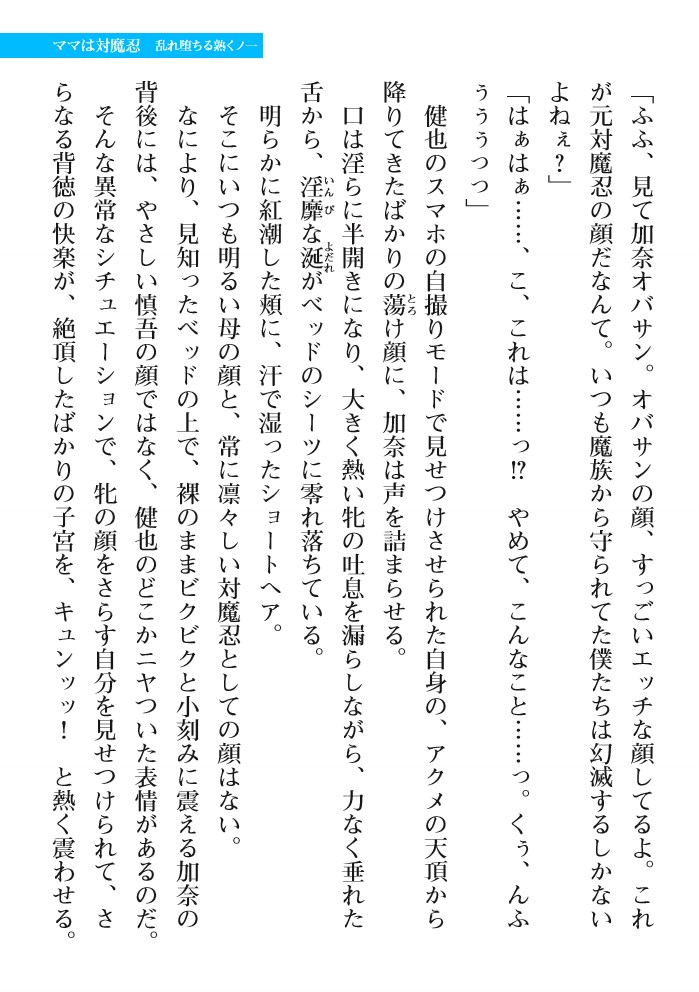 ママは対魔忍　乱れ堕ちる熟くノ一
「ふふ、見て加奈オバサン。オバサンの顔、すっごいエッチな顔してるよ。これ
が元対魔忍の顔だなんて。いつも魔族から守られてた僕たちは幻滅するしかない
よねぇ？」
「はぁはぁ……、こ、これは……っ!?　やめて、こんなこと……っ。くぅ、んふ
ぅぅぅっっ」
　健也のスマホの自撮りモードで見せつけさせられた自身の、アクメの天頂から
降りてきたばかりの蕩け顔に、加奈は声を詰まらせる。
　口は淫らに半開きになり、大きく熱い牝の吐息を漏らしながら、力なく垂れた
舌から、淫靡な涎がベッドのシーツに零れ落ちている。
　明らかに紅潮した頬に、汗で湿ったショートヘア。
　そこにいつも明るい母の顔と、常に凛々しい対魔忍としての顔はない。
　なにより、見知ったベッドの上で、裸のままビクビクと小刻みに震える加奈の
背後には、やさしい慎吾の顔ではなく、健也のどこかニヤついた表情があるのだ。
　そんな異常なシチュエーションで、牝の顔をさらす自分を見せつけられて、さ
らなる背徳の快楽が、絶頂したばかりの子宮を、キュンッッ！　と熱く震わせる。